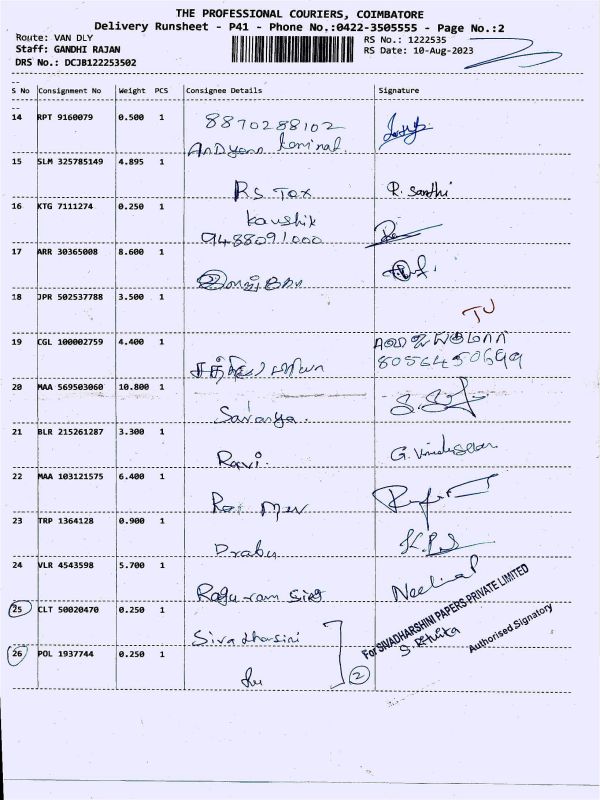 THE PROFESSIONAL COURIERS, COIMBATORE
Delivery Runsheet - P41 - Phone No.:0422-3505555 - Page No.:2
Route: VAN DLY
RS No.: 1222535
Staff: GANDHI RAJAN
RS Date: 10-Aug-2023
DRS No.: DCJB122253502
S No Consignment No Weight PCS Consignee Details Signature
14 RPT 9160079 0.500 1 8870288102
15 SLM 325785149 4.895 1
Rs Tex R. Santhi
16 KTG 7111274 0.250 1 Kaushik
9488091000
17 ARR 30365008 8.600 1
18 JPR 502537788 3.500 1
TU
19 CGL 100002759 4.400 1
8056450699
20 MAA 569503060 10.800 1
Saranya.
21 BLR 215261287 3.300 1
Ravi.
22 MAA 103121575 6.400 1
23 TRP 1364128 0.900 1
Prabu K.P.S
24 VLR 4543598 5.700 1
Ragu-ram
25 CLT 50020470 0.250 1
Sivadharsini
For SIVADHARSHINI PAPERS PRIVATE LIMITED
Authorised Signatory
26 POL 1937744 0.250 1
2